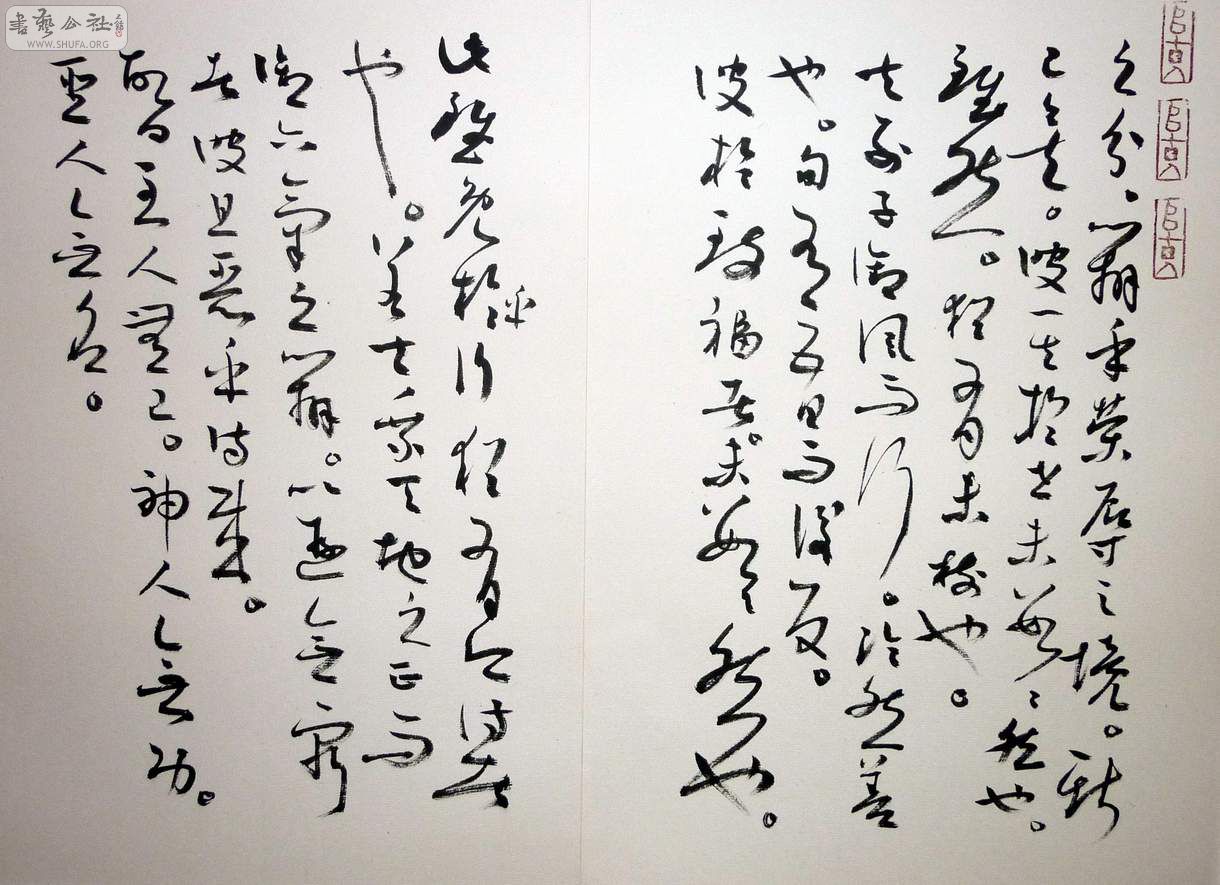 之分。辯乎榮辱之境。斯
已矣。彼其於世未數〻然也。
雖然。猶有未樹也。
夫列子御風而行。泠然善
也。旬有五日而後反。
彼於致福者。未數〻然也。
此雖免於乎行猶有所待者
也。若夫乘天地之正而
御六氣之辯。以遊無窮
者彼且惡乎待哉。
故曰至人無己。神人無功。
聖人無名。
書藝公社
WWW.SHUFA.ORG